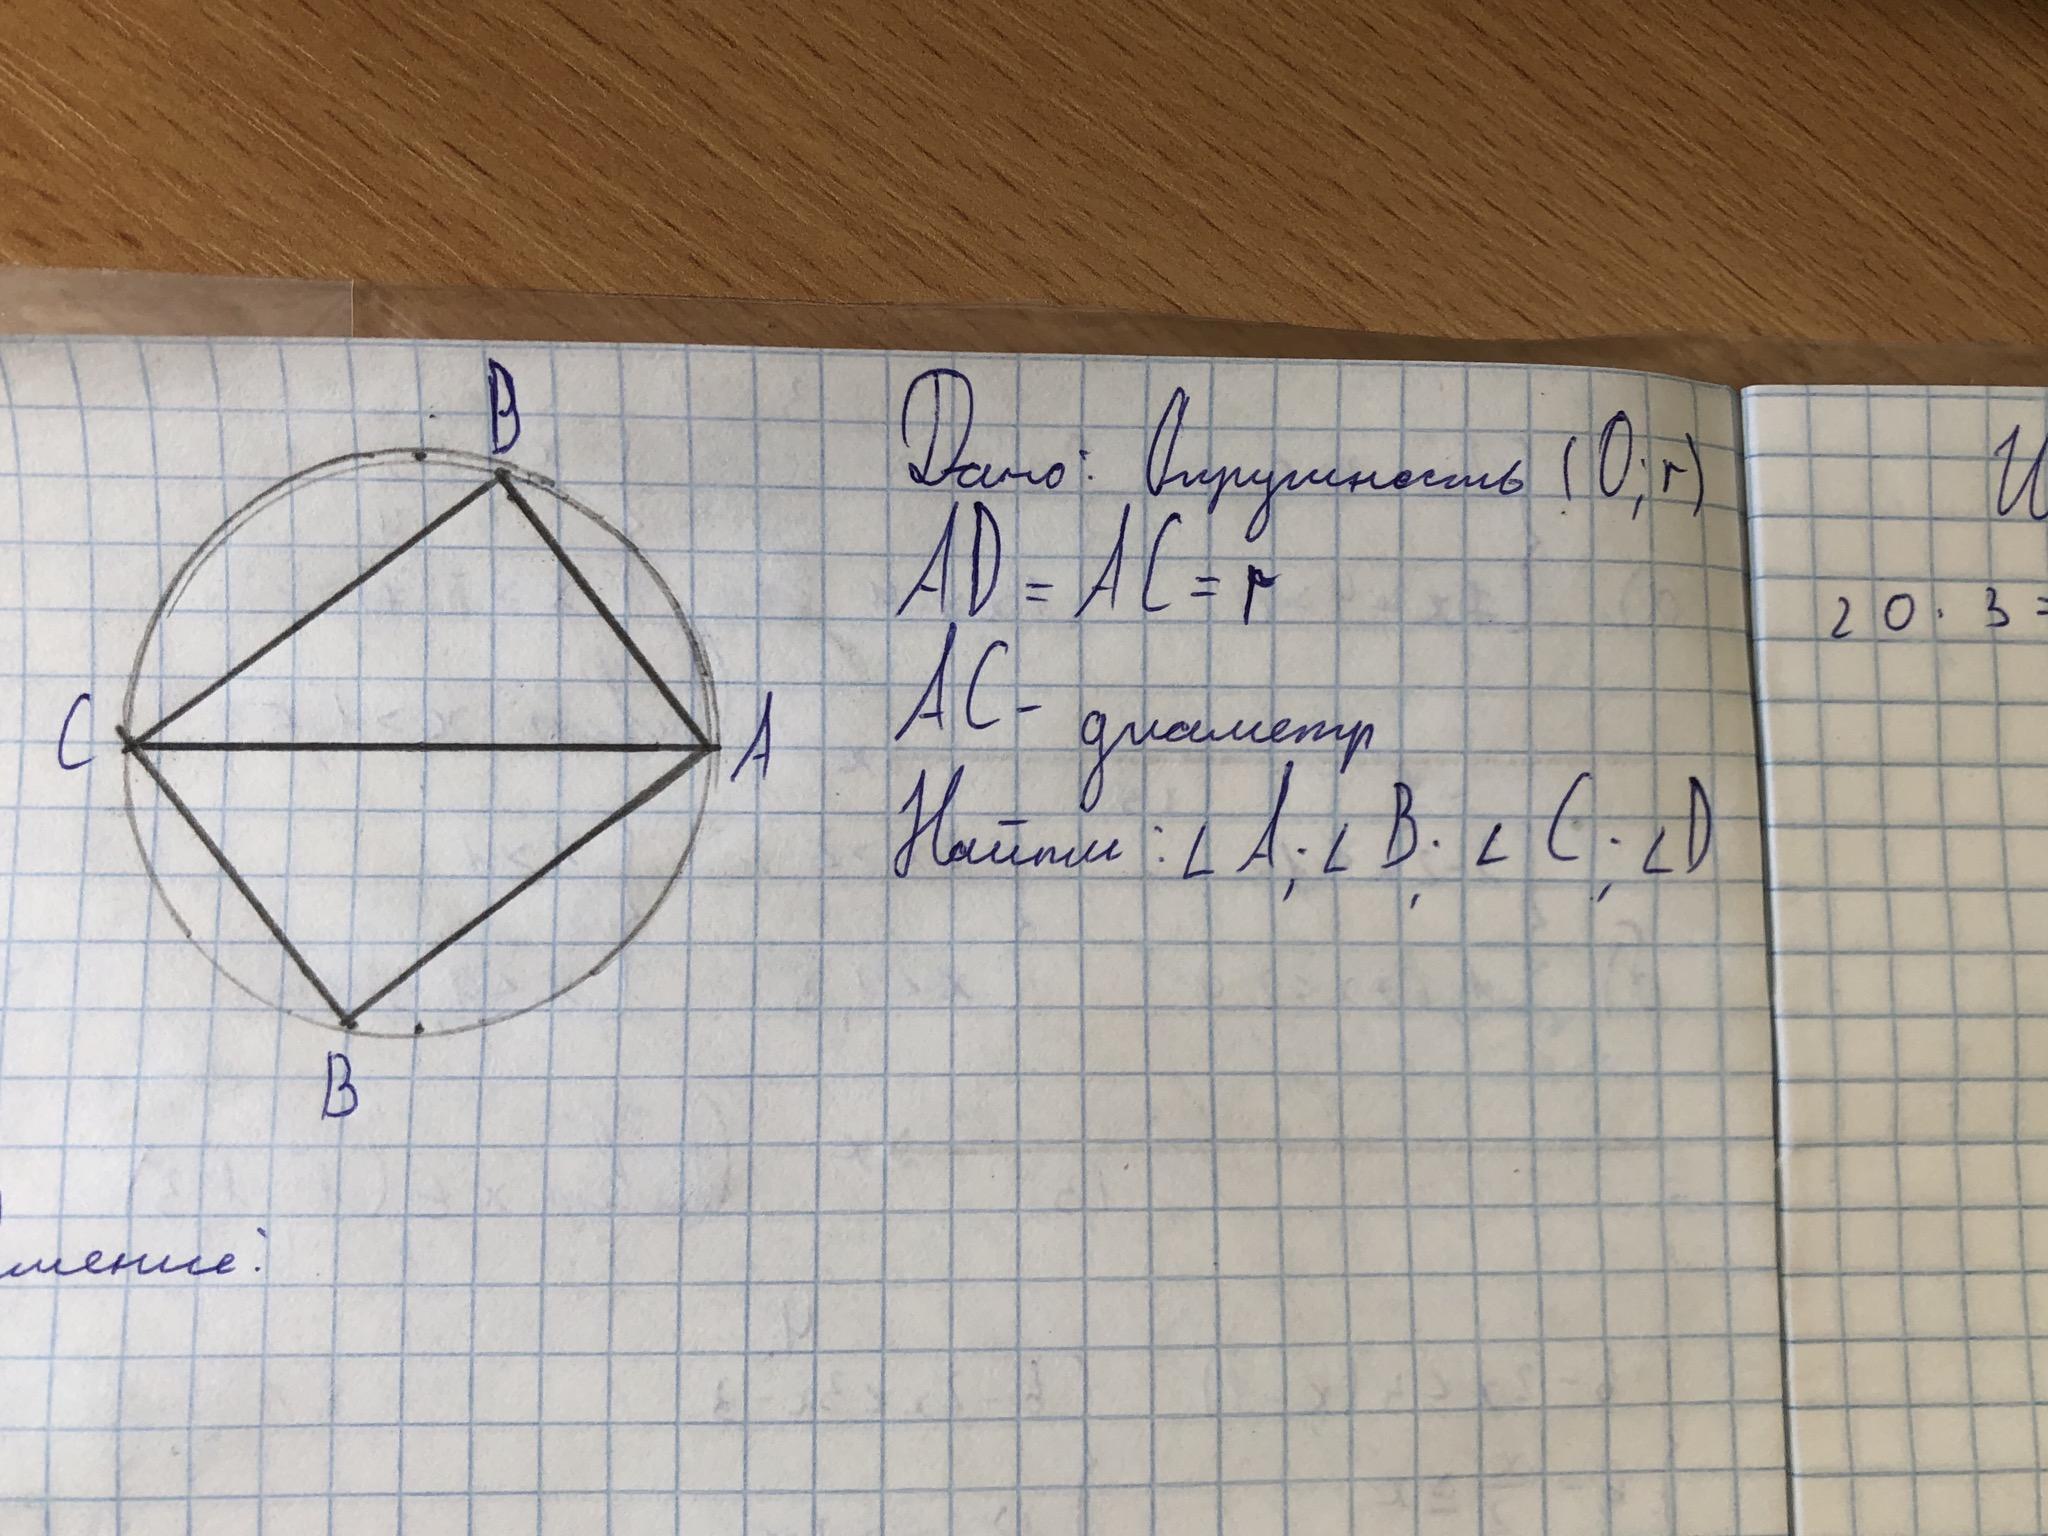 B
C
A
B
Дано: Окружность (O; r)
AD = AC = r
AC - диаметр
Найти: ∠A; ∠B; ∠C; ∠D
мение:
20. 3 =